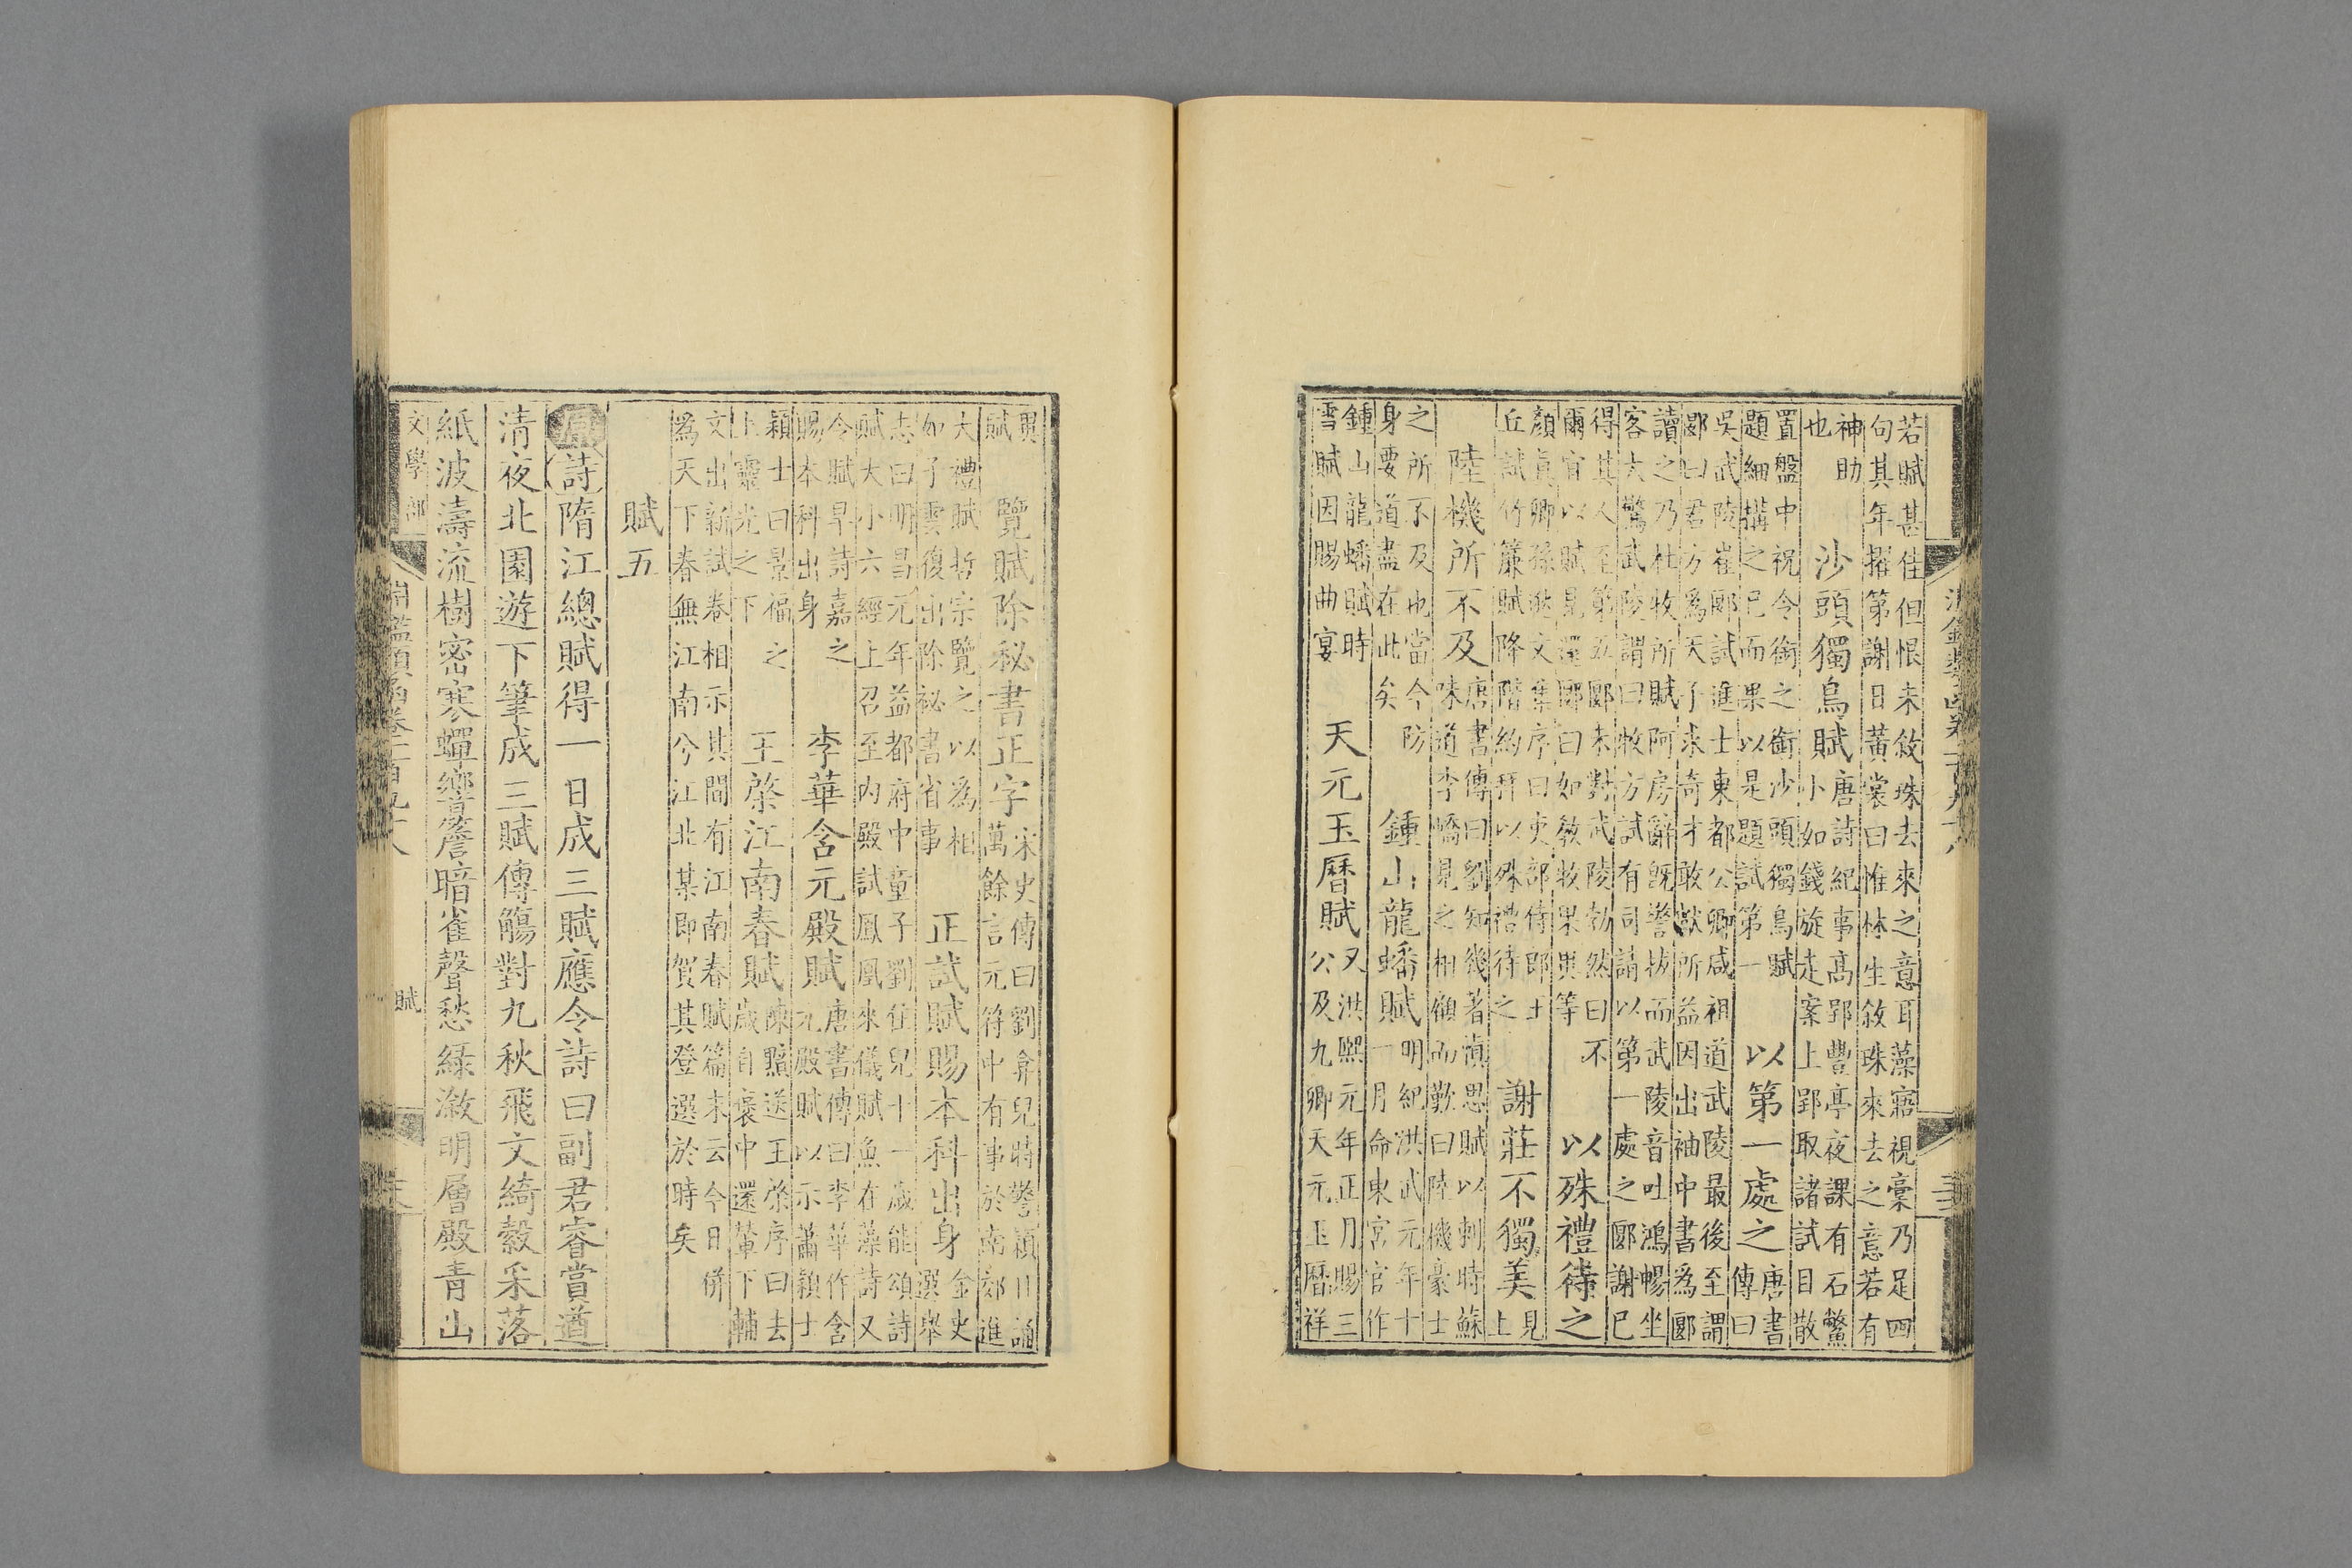 若賦甚佳但恨未敘珠去來之意耳藻寤視藁乃足四
句其年擢第謝日黃裳曰惟林生敘珠來去之意若有
神助
也
沙頭獨鳥賦
唐詩紀事高郢豐亭夜課有石鱉
小如錢旋走案上郢取諸試目散
置盤中祝令銜之銜沙頭獨鳥賦
題細搆之已而果以是題試第一
以第一處之
唐書
傳曰
吳武陵崔郾試進士東都公卿咸祖道武陵最後至謂
郾曰君方為天子求奇才敢獻所益因出袖中書為郾
讀之乃杜牧所賦阿房辭既警拔而武陵音吐鴻暢坐
客大驚武陵謂曰牧方試有司請以第一處之郾謝已
得其人至第五郾未對武陵勃然曰不
爾宜以賦見還郾曰如敎牧果異等
以殊禮待之
顏真卿孫逖文集序曰吏部侍郎王
丘試竹簾賦降階約拜以殊禮待之
謝莊不獨美
見
上
陸機所不及
唐書傳曰劉知幾著慎思賦以刺時蘇
味道李嶠見之相顧而歎曰陸機豪士
之所不及也當今防
身要道盡在此矣
鍾山龍蟠賦
明紀洪武元年十
一月命東宮官作
鍾山龍蟠賦時
雪賦因賜曲宴
天元玉曆賦
又洪熙元年正月賜三
公及九卿天元玉曆祥
異
賦
覽賦除秘書正字
宋史傳曰劉弇兒時警穎日誦
萬餘言元符中有事於南郊進
大禮賦哲宗覽之以為相
如子雲復出除祕書省事
正試賦賜本科出身
金史
選舉
志曰明昌元年益都府申童子劉住兒十一歲能頌詩
賦大小六經上召至內殿試鳳凰來儀賦魚在藻詩又
令賦早詩嘉之
賜本科出身
李華含元殿賦
唐書傳曰李華作含
元殿賦以示蕭穎士
穎士曰景福之
上靈光之下
王棨江南春賦
陳黯送王棨序曰去
歲自褒中還輦下輔
文出新試卷相示其間有江南春賦篇末云今日併
為天下春無江南兮江北某即賀其登選於時矣
賦五
原詩隋江總賦得一日成三賦應令詩曰副君睿賞遒
清夜北園遊下筆成三賦傳觴對九秋飛文綺縠采落
紙波濤流樹密寒蟬響簷暗雀聲愁綠潋明層殿青山
文學部
淵鑑類函卷一百九十八
賦